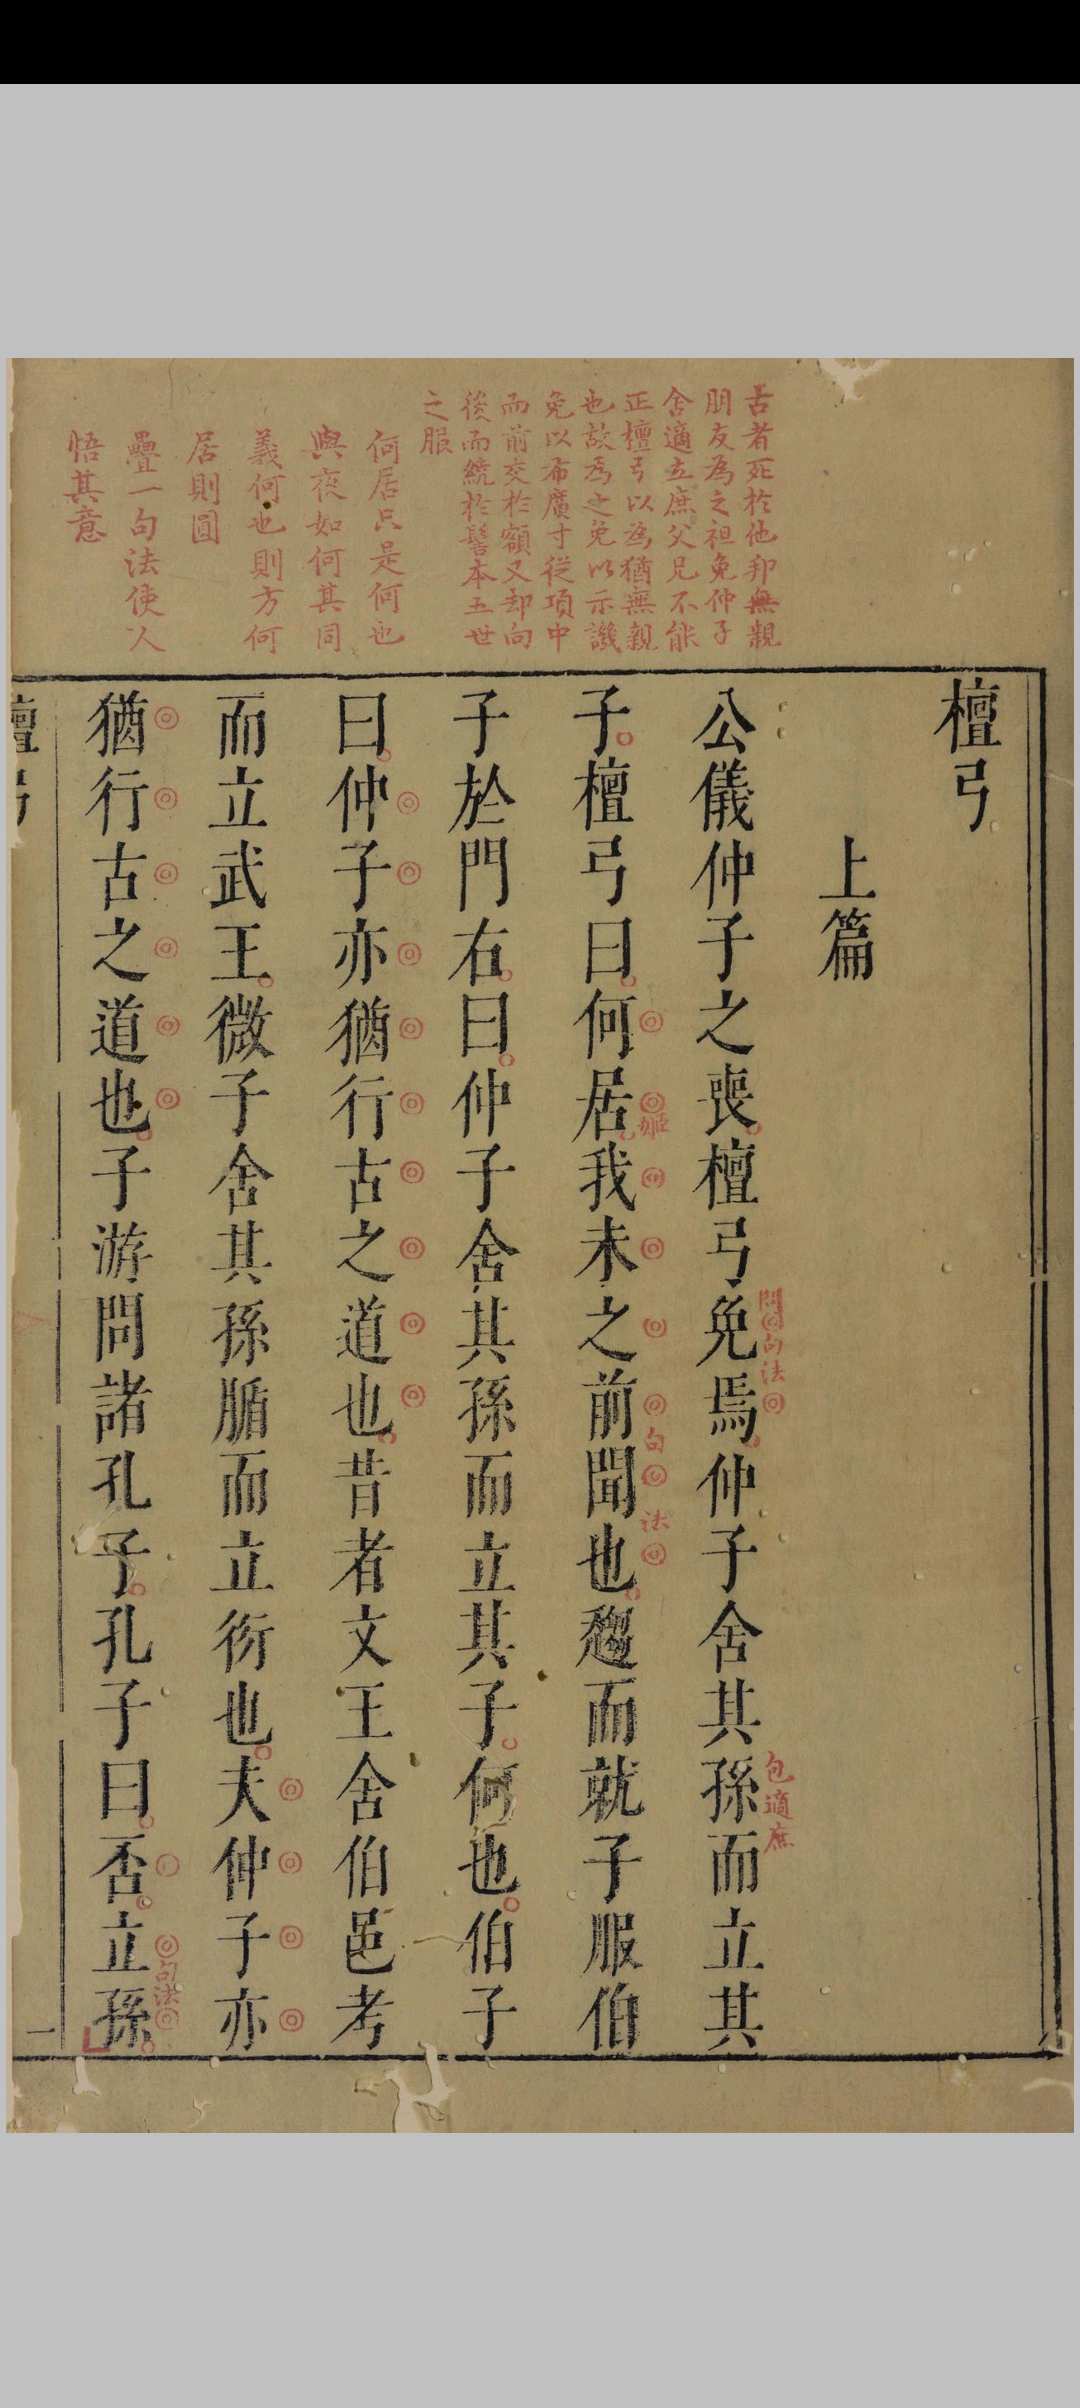 檀弓
上篇
公儀仲子之喪檀弓免焉仲子舍其孫而立其
子檀弓曰何居我未之前聞也趨而就子服伯
子於門右曰仲子舍其孫而立其子何也伯子
曰仲子亦猶行古之道也昔者文王舍伯邑考
而立武王微子舍其孫腯而立衍也夫仲子亦
猶行古之道也子游問諸孔子孔子曰否立孫
檀弓
一
古者死於他邦無親
朋友為之袒免仲子
舍適立庶父兄不能
正檀弓以為猶無親
也故為之免以示譏
免以布廣寸從項中
而前交於額又却向
後而繞於髻本五世
之服
何居只是何也
與夜如何其同
義何也則方何
居則圓
疊一句法使人
悟其意
問句法
包適庶
姬
句法
句法